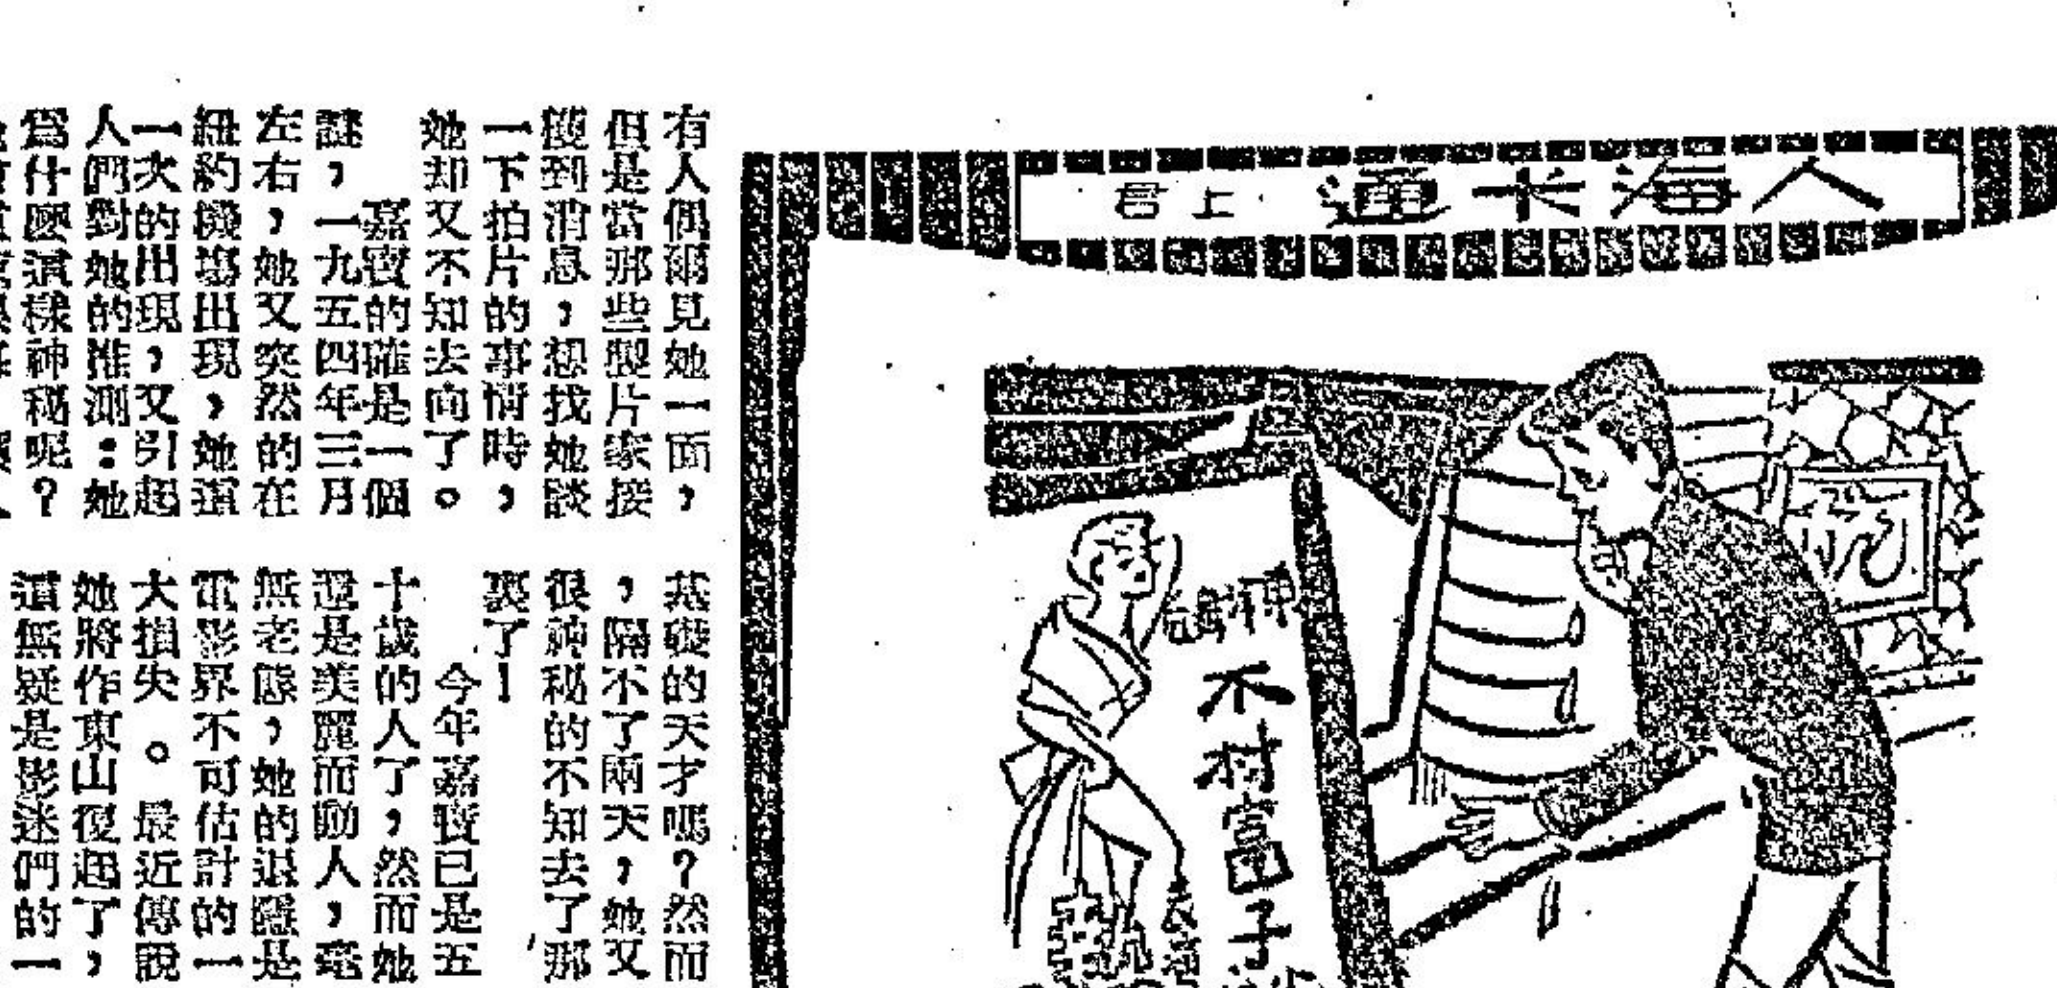 人海水通 上官
有人偶爾見她一面，
但是當那些製片家接
獲到消息，想找她談
一下拍片的事情時，
她却又不知去向了。
嘉寶的確是一個
謎，一九五四年三月
左右，她又突然的在
紐約機塲出現，她這
一次的出現，又引起
人們對她的推測：她
爲什麼這樣神秘呢？
基礎的天才嗎？然而
，隔不了兩天，她又
很神秘的不知去了那
裏了！
今年嘉寶已是五
十歲的人了，然而她
還是美麗而動人，毫
無老態，她的退隱是
電影界不可估計的一
大損失。最近傳說
她將作東山復起了，
這無疑是影迷們的一
木村富子